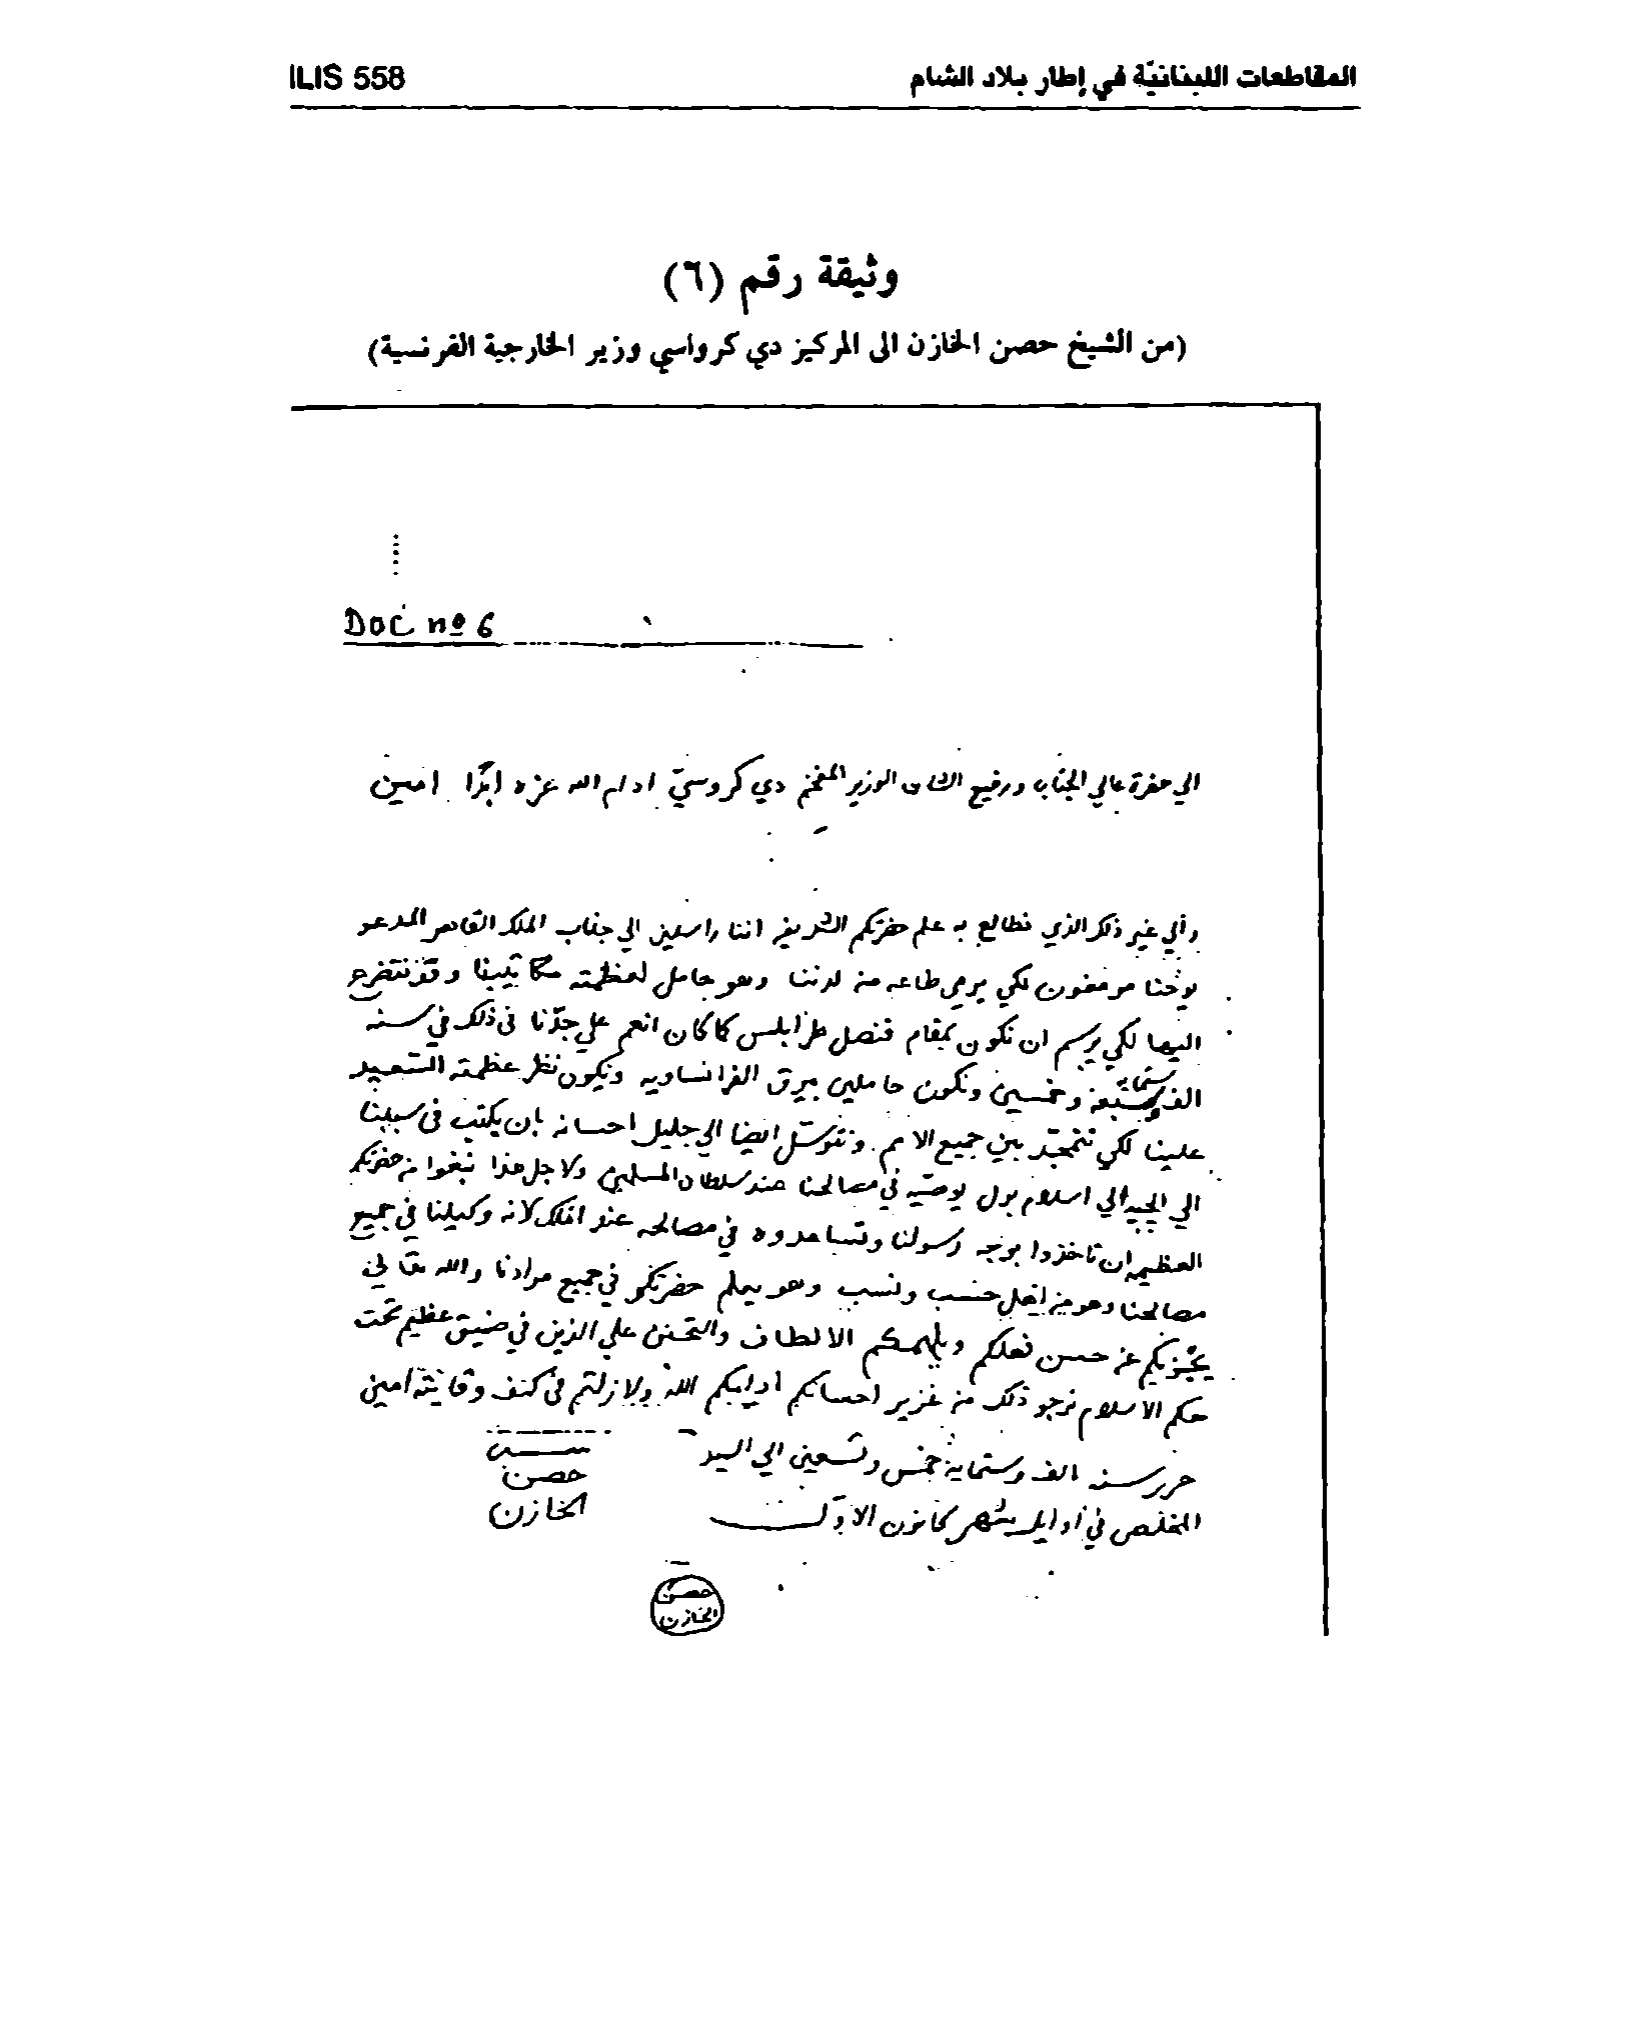 المقاطعات اللبنانيّة في إطار بلاد الشام
ILIS 558
وثيقة رقم (٦)
(من الشيخ حصن الخازن الى المركيز دي كرواسي وزير الخارجية الفرنسية)
DOC nº 6
الي حضرة عالي الجناب ورفيع الشان الوزير المفخم دي كروسيّ ادام الله عزه ابدًا امين
والي غير ذلك الذي نطالع به علم حضرتكم الشريفه اننا راسلين الي جناب الملك القاهر المدعو
يوحنا مرمغون لكي يرمي طاعه من لدننا وهو حامل لعظمته مكاتيبنا وقد نتضرع
اليها لكي يرسم ان نكون بمقام قنصل طرابلس كما كان انعم علي جدّنا في ذلك في سنه
الف وستمايه وخمسين ونكون حاملين بيرق الفرانساويه ويكون نظر عظمته السعيد
علينا لكي نتمجّد بين جميع الامم. ونتوسّل ايضا الي جليل احسانه بان يكتب في سبيلنا
الي الجيه الي اسلام بول يوصّيه في مصالحنا عند سلطان المسلمين ولاجل هذا نبغوا من حضرتكم
العظيمه ان تاخذوا بوجه رسولنا وتساعدوه في مصالحه عند الملك لانه وكيلنا في جميع
مصالحنا وهو من اهل حسب ونسب وهو يعلم حضرتكم في جميع مرادنا والله تعالي
يجزيكم عن حسن فعلكم ويلهمكم الالطاف والتحنن علي الذين في ضيق عظيم تحت
حكم الاسلام نرجو ذلك من غزير احسانكم ادامكم الله ولا زلتم في كنف وقايته امين
حرر سنه الف وستماية خمس وتسعين الي السيد
المخلص في اوايل شهر كانون الاول
حصن
الخازن
حصن
الخازن